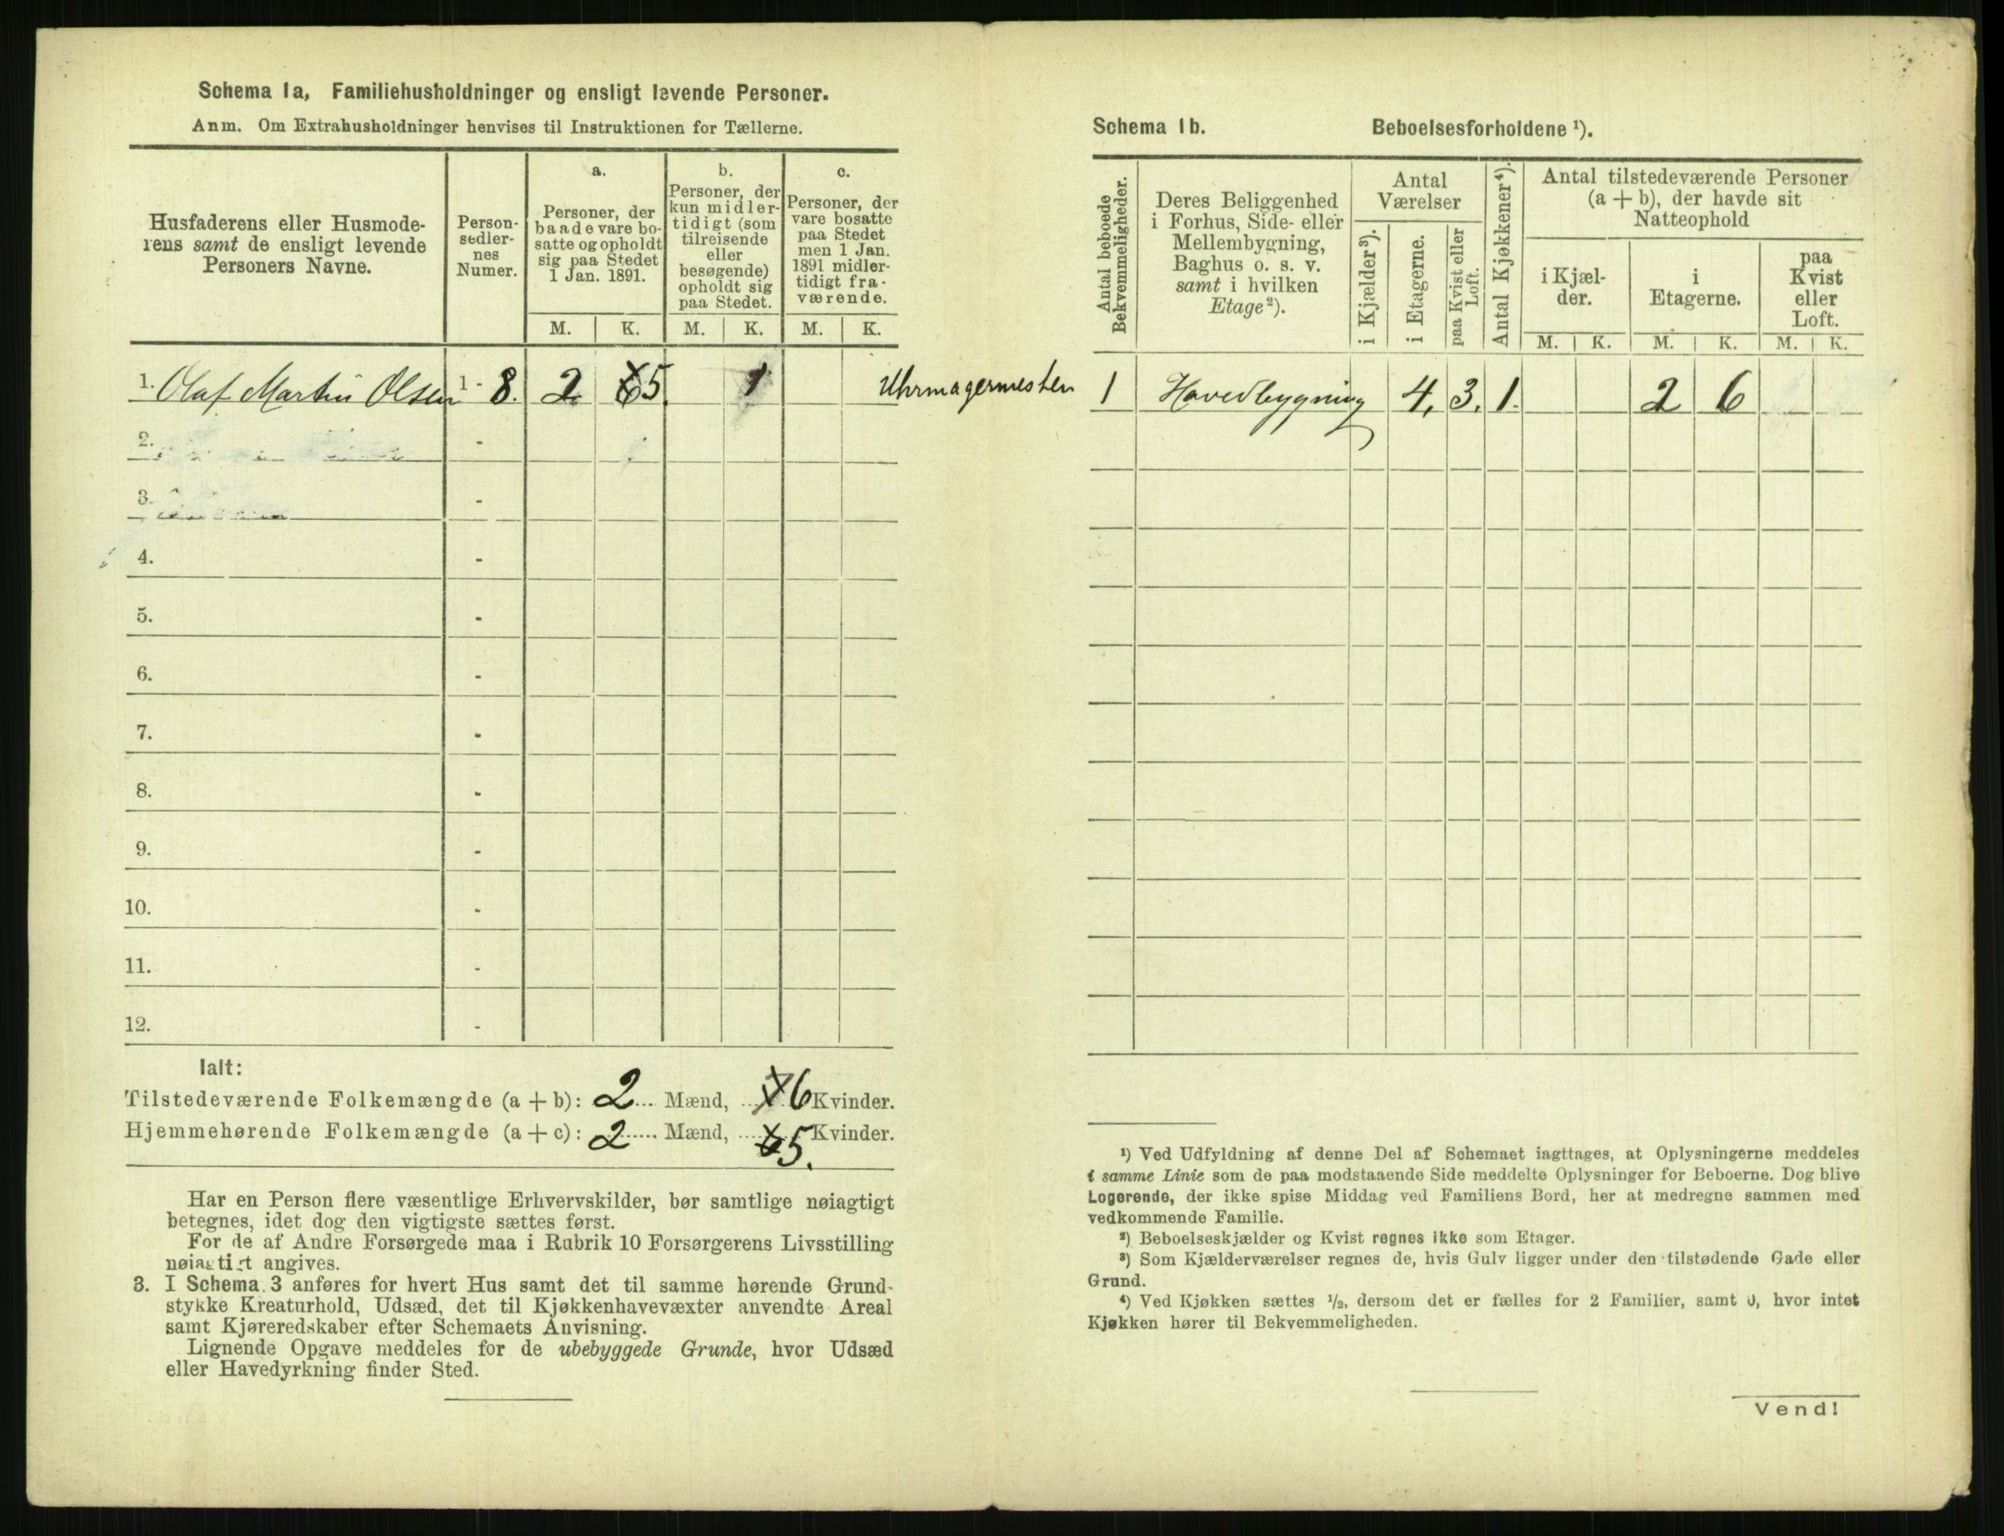 Schema 1a, Familiehusholdninger og ensligt levende Personer.
Anm. Om Extrahusholdninger henvises til Instruktionen for Tællerne.
Husfaderens eller Husmode-
rens samt de ensligt levende
Personers Navne.
Person-
sedler-
nes
Numer.
a.
Personer, der
baade vare bo-
satte og opholdt
sig paa Stedet
1 Jan. 1891.
b.
Personer, der
kun midler-
tidigt (som
tilreisende
eller
besøgende)
opholdt sig
paa Stedet.
c.
Personer, der
vare bosatte
paa Stedet
men 1 Jan.
1891 midler-
tidigt fra-
værende.
M. K. M. K. M. K.
1. Olaf Martin Olsen 1 - 8. 2 6 5 1 Uhrmagermester
2. -
3. -
4. -
5. -
6. -
7. -
8. -
9. -
10. -
11. -
12. -
Ialt:
Tilstedeværende Folkemængde (a + b): 2 Mænd, 7 6 Kvinder.
Hjemmehørende Folkemængde (a + c): 2 Mænd, 6 5. Kvinder.
Har en Person flere væsentlige Erhvervskilder, bør samtlige nøiagtigt
betegnes, idet dog den vigtigste sættes først.
For de af Andre Forsørgede maa i Rubrik 10 Forsørgerens Livsstilling
nøiagtigt angives.
3. I Schema 3 anføres for hvert Hus samt det til samme hørende Grund-
stykke Kreaturhold, Udsæd, det til Kjøkkenhavevæxter anvendte Areal
samt Kjøreredskaber efter Schemaets Anvisning.
Lignende Opgave meddeles for de ubebyggede Grunde, hvor Udsæd
eller Havedyrkning finder Sted.
Schema 1b. Beboelsesforholdene ¹).
Antal beboede
Bekvemmeligheder.
Deres Beliggenhed
i Forhus, Side- eller
Mellembygning,
Baghus o. s. v.
samt i hvilken
Etage²).
Antal
Værelser
i Kjælder³).
i Etagerne.
paa Kvist eller
Loft.
Antal Kjøkkener⁴).
Antal tilstedeværende Personer
(a + b), der havde sit
Natteophold
i Kjæl-
der.
i
Etagerne.
paa
Kvist
eller
Loft.
M. K. M. K. M. K.
1 Hovedbygning 4. 3. 1. 2 6
¹) Ved Udfyldning af denne Del af Schemaet iagttages, at Oplysningerne meddeles
i samme Linie som de paa modstaaende Side meddelte Oplysninger for Beboerne. Dog blive
Logerende, der ikke spise Middag ved Familiens Bord, her at medregne sammen med
vedkommende Familie.
²) Beboelseskjælder og Kvist regnes ikke som Etager.
³) Som Kjælderværelser regnes de, hvis Gulv ligger under den tilstødende Gade eller
Grund.
⁴) Ved Kjøkken sættes ½, dersom det er fælles for 2 Familier, samt 0, hvor intet
Kjøkken hører til Bekvemmeligheden.
Vend!